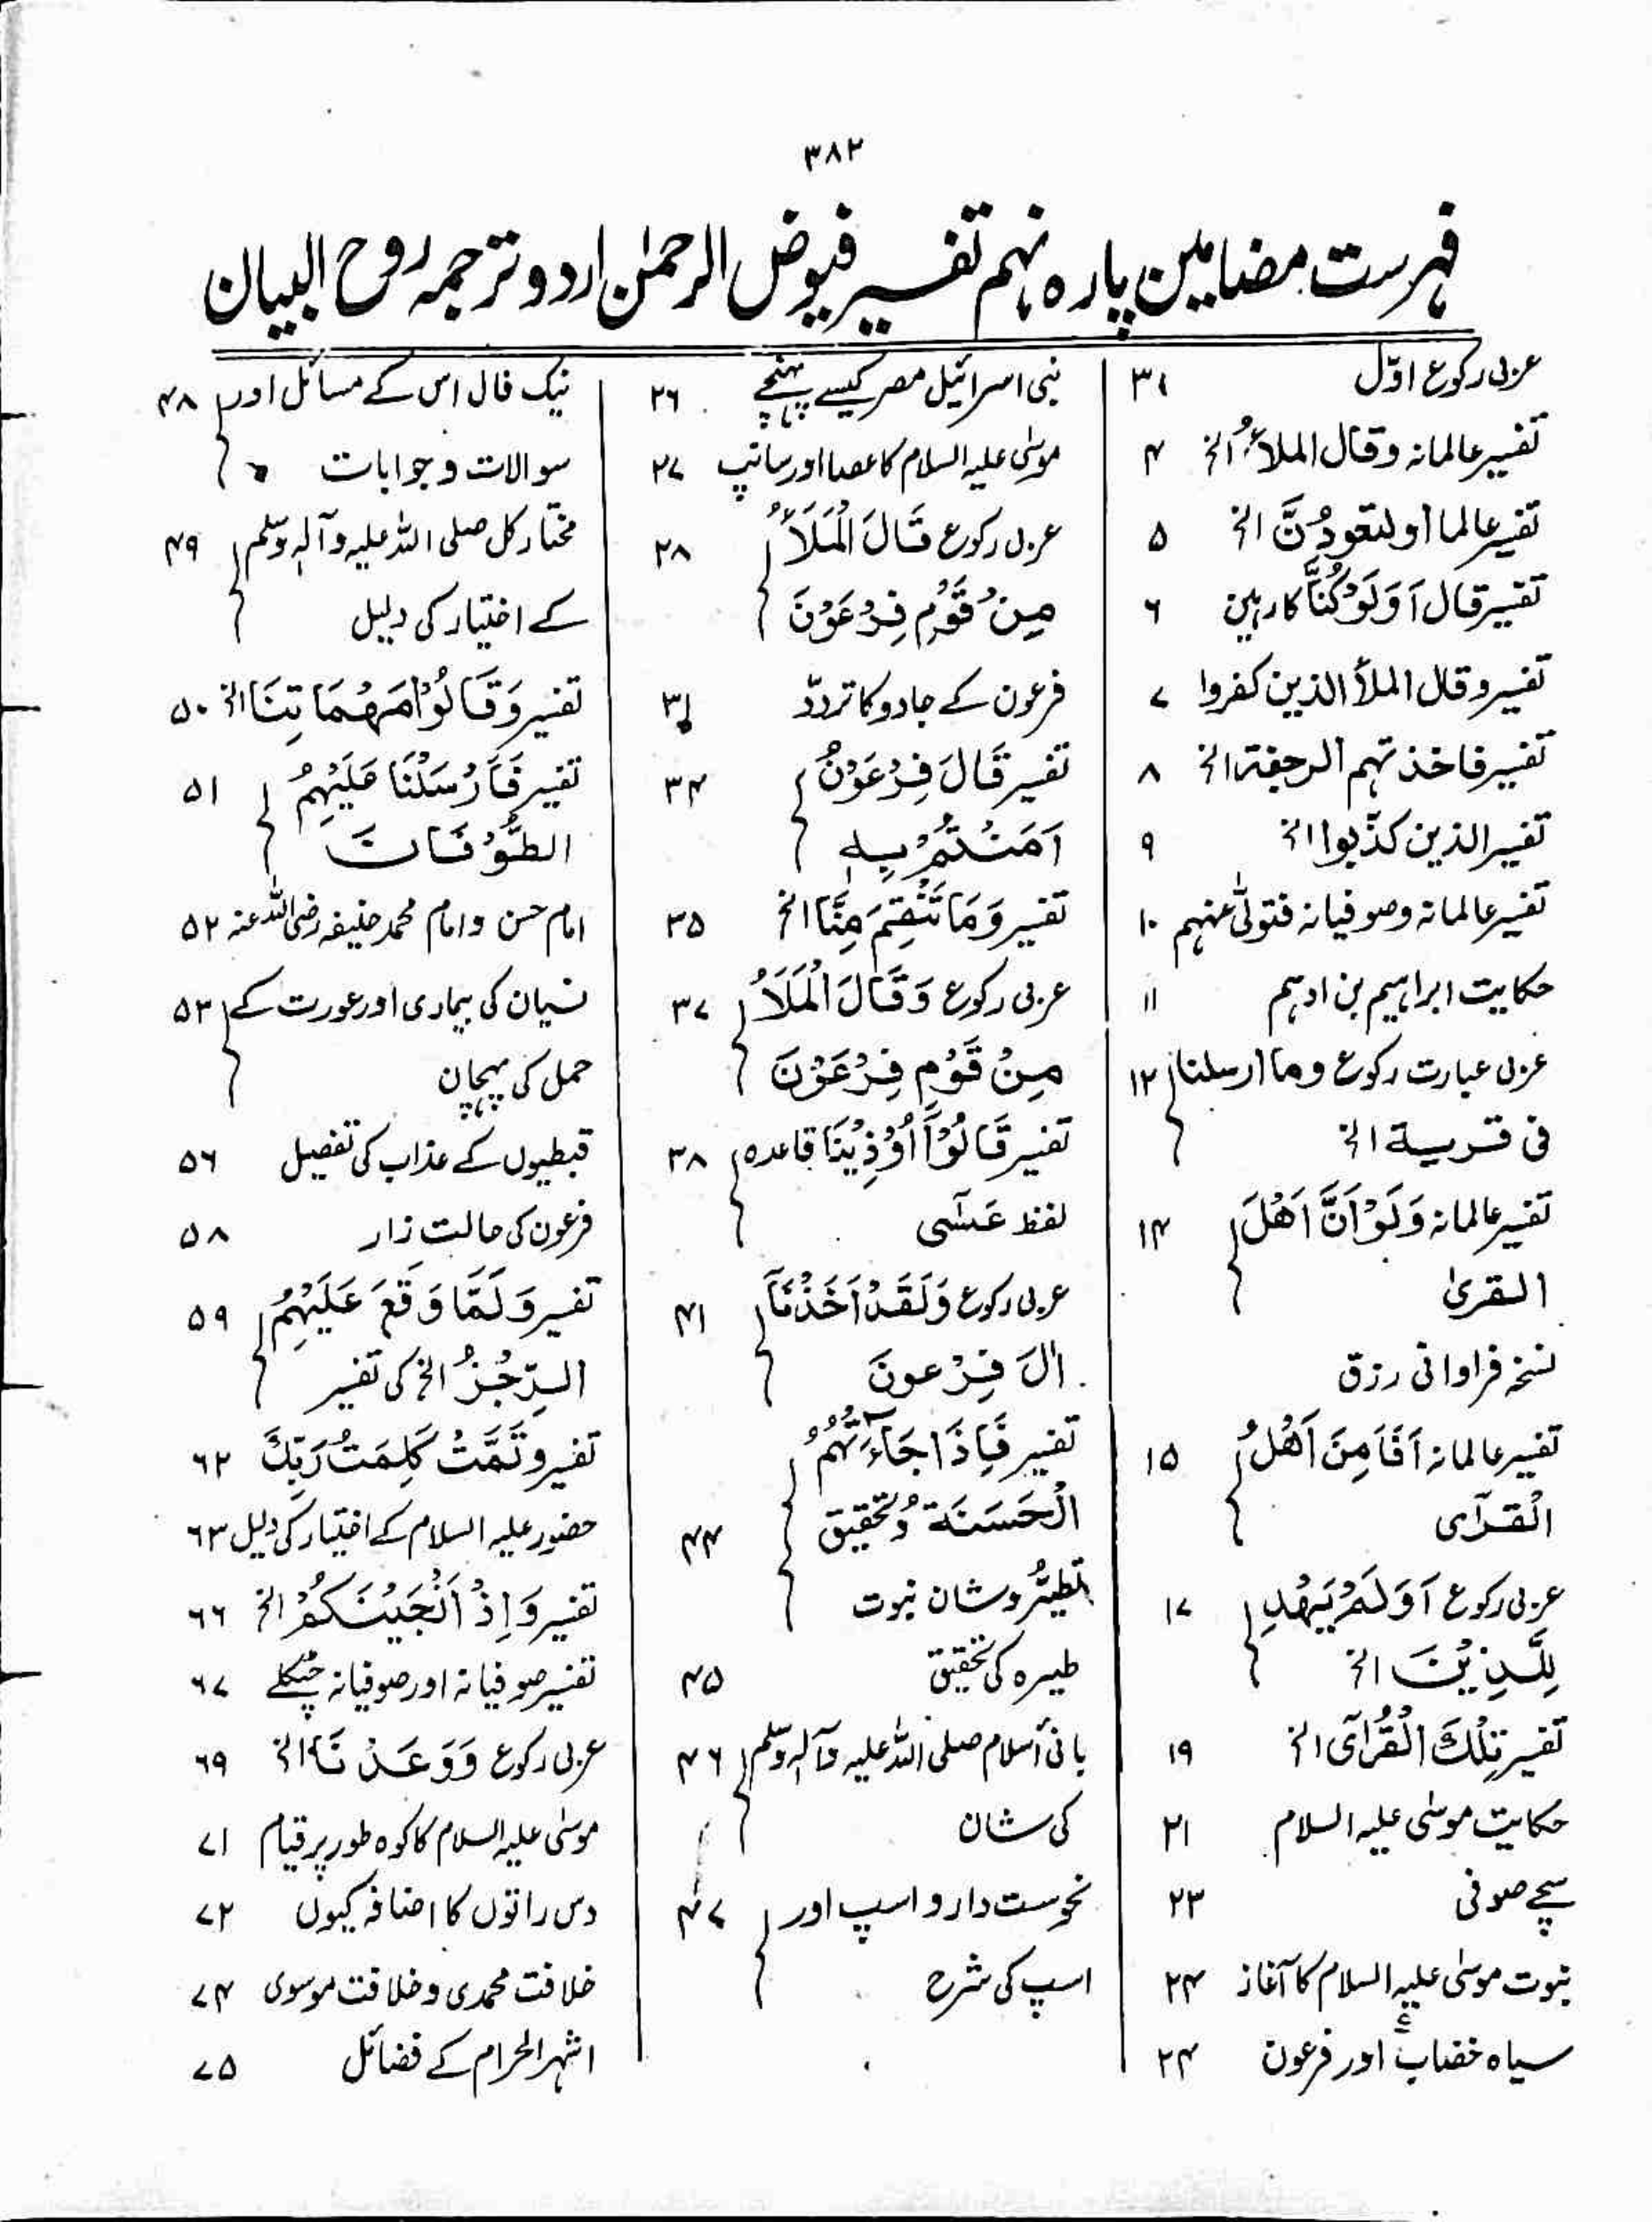 ۳۸۲
فہرست مضامین پارہ نہم تفسیر فیوض الرحمٰن اردو ترجمہ روح البیان
عربی رکوع اوّل ۳۱
تفسیر عالمانہ وقال الملاءُ الخ ۴
تفسیر عالما أو لتعودُنَّ الخ ۵
تفسیر قال اَوَلَوْ كُنَّا کارہین ۶
تفسیر وقال الملأ الذین کفروا ۷
تفسیر فاخذتہم الرجفۃ الخ ۸
تفسیر الذین کذّبوا الخ ۹
تفسیر عالمانہ وصوفیانہ فتولّٰی عنہم ۱۰
حکایت ابراہیم بن ادہم ۱۱
عربی عبارت رکوع وما ارسلنا ۱۲
فی قریۃ الخ
تفسیر عالمانہ وَلَوْ اَنَّ اَهْلَ ۱۴
القریٰ
نسخہ فراوانی رزق
تفسیر عالمانہ اَفَاَمِنَ اَهْلُ ۱۵
الْقُرٰى
عربی رکوع اَوَلَمْ يَهْدِ ۱۷
لِلَّذِيْنَ الخ
تفسیر تِلْكَ الْقُرٰى الخ ۱۹
حکایت موسٰی علیہ السلام ۲۱
سچے صوفی ۲۳
نبوت موسٰی علیہ السلام کا آغاز ۲۴
سیاہ خضاب اور فرعون ۲۴
بنی اسرائیل مصر کیسے پہنچے ۲۶
موسٰی علیہ السلام کا عصا اور سانپ ۲۷
عربی رکوع قَالَ الْمَلَاُ ۲۸
مِنْ قَوْمِ فِرْعَوْنَ
فرعون کے جادو کا تردّد ۳۱
تفسیر قَالَ فِرْعَوْنُ ۳۴
اٰمَنْتُمْ بِهٖ
تفسیر وَمَا تَنْقِمُ مِنَّا الخ ۳۵
عربی رکوع وَقَالَ الْمَلَاُ ۳۷
مِنْ قَوْمِ فِرْعَوْنَ
تفسیر قَالُوْا اُوْذِيْنَا قاعدہ ۳۸
لفظ عَسٰى
عربی رکوع وَلَقَدْ اَخَذْنَا ۴۱
اٰلَ فِرْعونَ
تفسیر فَاِذَا جَآءَتْهُمُ
الْحَسَنَةُ و تحقیق ۴۴
تطیُّر و شان نبوت
طیرہ کی تحقیق ۴۵
بانی اسلام صلی اللہ علیہ وآلہٖ وسلم ۴۶
کی شان
نحوست دار و اسپ اور ۴۷
اسپ کی شرح
نیک فال اس کے مسائل اور ۴۸
سوالات وجوابات
مختار کل صلی اللہ علیہ وآلہٖ وسلم ۴۹
کے اختیار کی دلیل
تفسیر وَقَالُوْا مَهْمَا تِنَا الخ ۵۰
تفسیر فَاَرْسَلْنَا عَلَيْهِمُ ۵۱
الطُّوْفَانَ
امام حسن و امام محمد حنیفہ رضی اللہ عنہ ۵۲
نسیان کی بیماری اور عورت کے ۵۳
حمل کی پہچان
قبطیوں کے عذاب کی تفصیل ۵۶
فرعون کی حالت زار ۵۸
تفسیر وَلَمَّا وَقَعَ عَلَيْهِمُ ۵۹
الرِّجْزُ الخ کی تفسیر
تفسیر وتَمَّتْ كَلِمَتُ رَبِّكَ ۶۲
حضور علیہ السلام کے اختیار کی دلیل ۶۳
تفسیر وَاِذْ اَنْجَيْنٰكُمْ الخ ۶۶
تفسیر صوفیانہ اور صوفیانہ چٹکلے ۶۷
عربی رکوع وَوٰعَدْنَا الخ ۶۹
موسٰی علیہ السلام کا کوہ طور پر قیام ۷۱
دس راتوں کا اضافہ کیوں ۷۲
خلافت محمدی وخلافت موسوی ۷۴
اشہر الحرام کے فضائل ۷۵